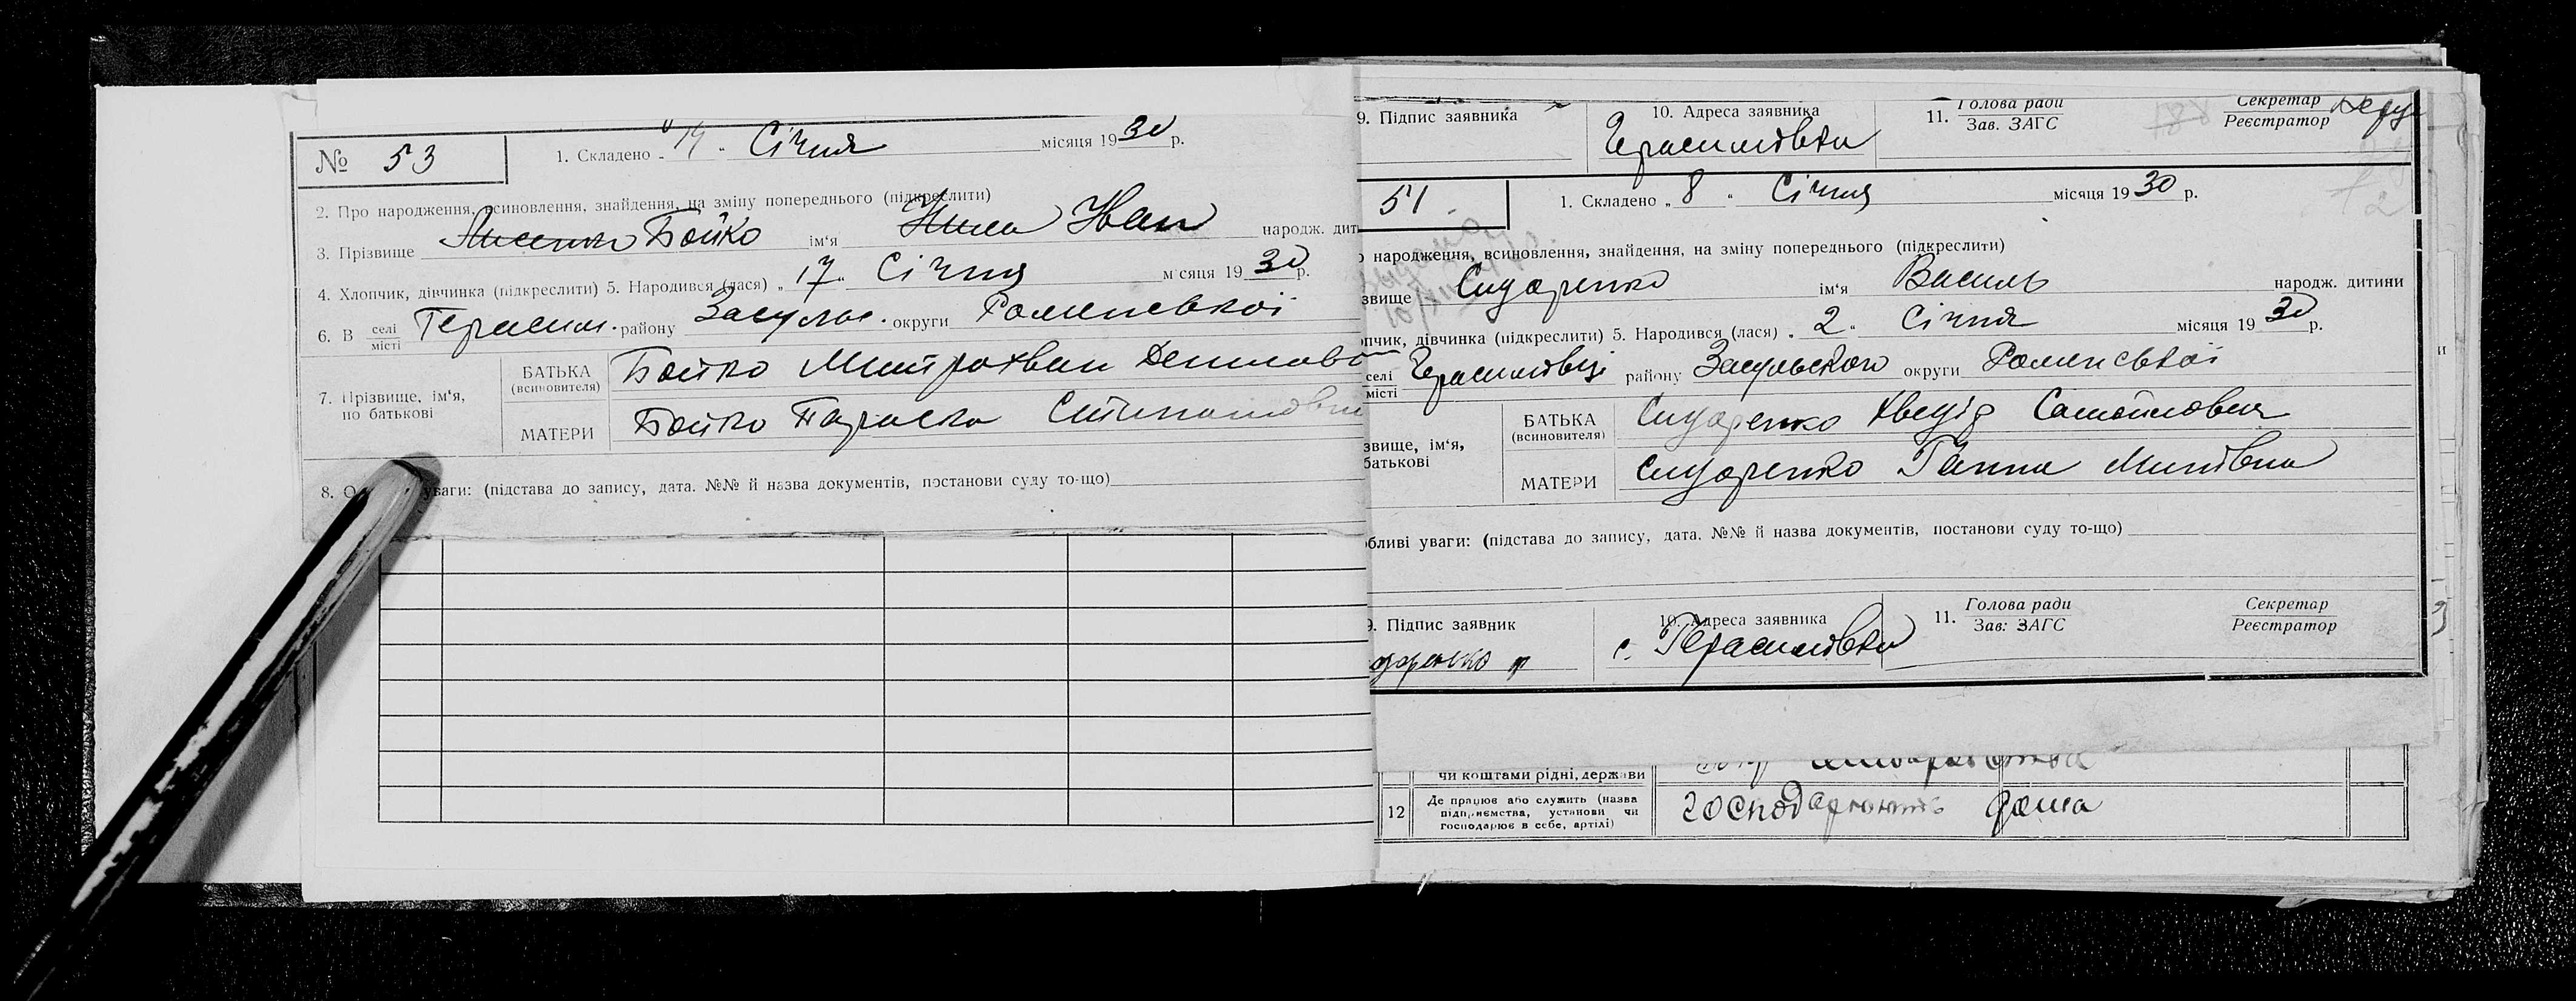 № 53
1. Складено „19" Січня місяця 1930 р.
2. Про народження, всиновлення, знайдення, на зміну попереднього (підкреслити)
3. Прізвище Бойко ім'я Иван народж. дит
4. Хлопчик, дівчинка (підкреслити) 5. Народився (лася) „17" Січня місяця 1930 р.
6. В селі місті Герасим. району Засульс. округи Роменської
7. Прізвище, ім'я, по батькові
БАТЬКА (всиновителя) Бойко Митрохван
МАТЕРИ Бойко Параска
8. О уваги: (підстава до запису, дата. №№ й назва документів, постанови суду то-що)
9. Підпис заявника
10. Адреса заявника
Герасимовка
11. Голова ради
Зав. ЗАГС
Секретар
Реєстратор
51
1. Складено „8" Січня місяця 1930 р.
народження, всиновлення, знайдення, на зміну попереднього (підкреслити)
звище Сидоренко ім'я Василь народж. дитини
пчик, дівчинка (підкреслити) 5. Народився (лася) „2" Січня місяця 1930 р.
селі місті Герасимовці району Засульского округи Роменської
звище, ім'я,
батькові
БАТЬКА (всиновителя) Сидоренко Хведір Самойлович
МАТЕРИ Сидоренко Ганна
бливі уваги: (підстава до запису, дата. №№ й назва документів, постанови суду то-що)
9. Підпис заявник
доренко
10. Адреса заявника
с. Герасимовка
11. Голова ради
Зав: ЗАГС
Секретар
Реєстратор
чи коштами рідні, держави
12 Де працює або служить (назва
підприємства, установи чи
господарює в себе, артілі)
господарюють дома